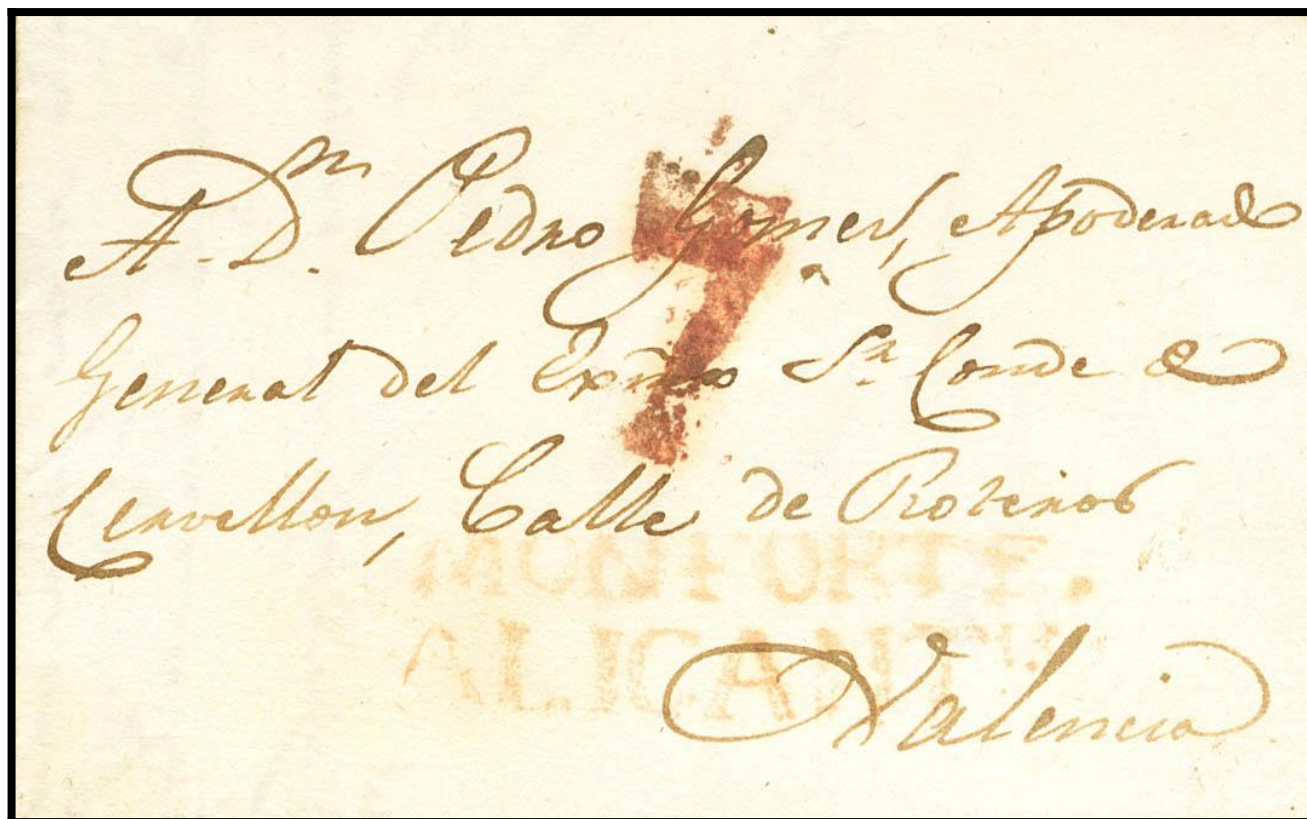 A. Dn. Pedro Gomes, Apoderado
7
General del Exmo Sr. Conde de
Cervellon, Calle de Roteros
MONFORTE.
ALICANTE
Valencia